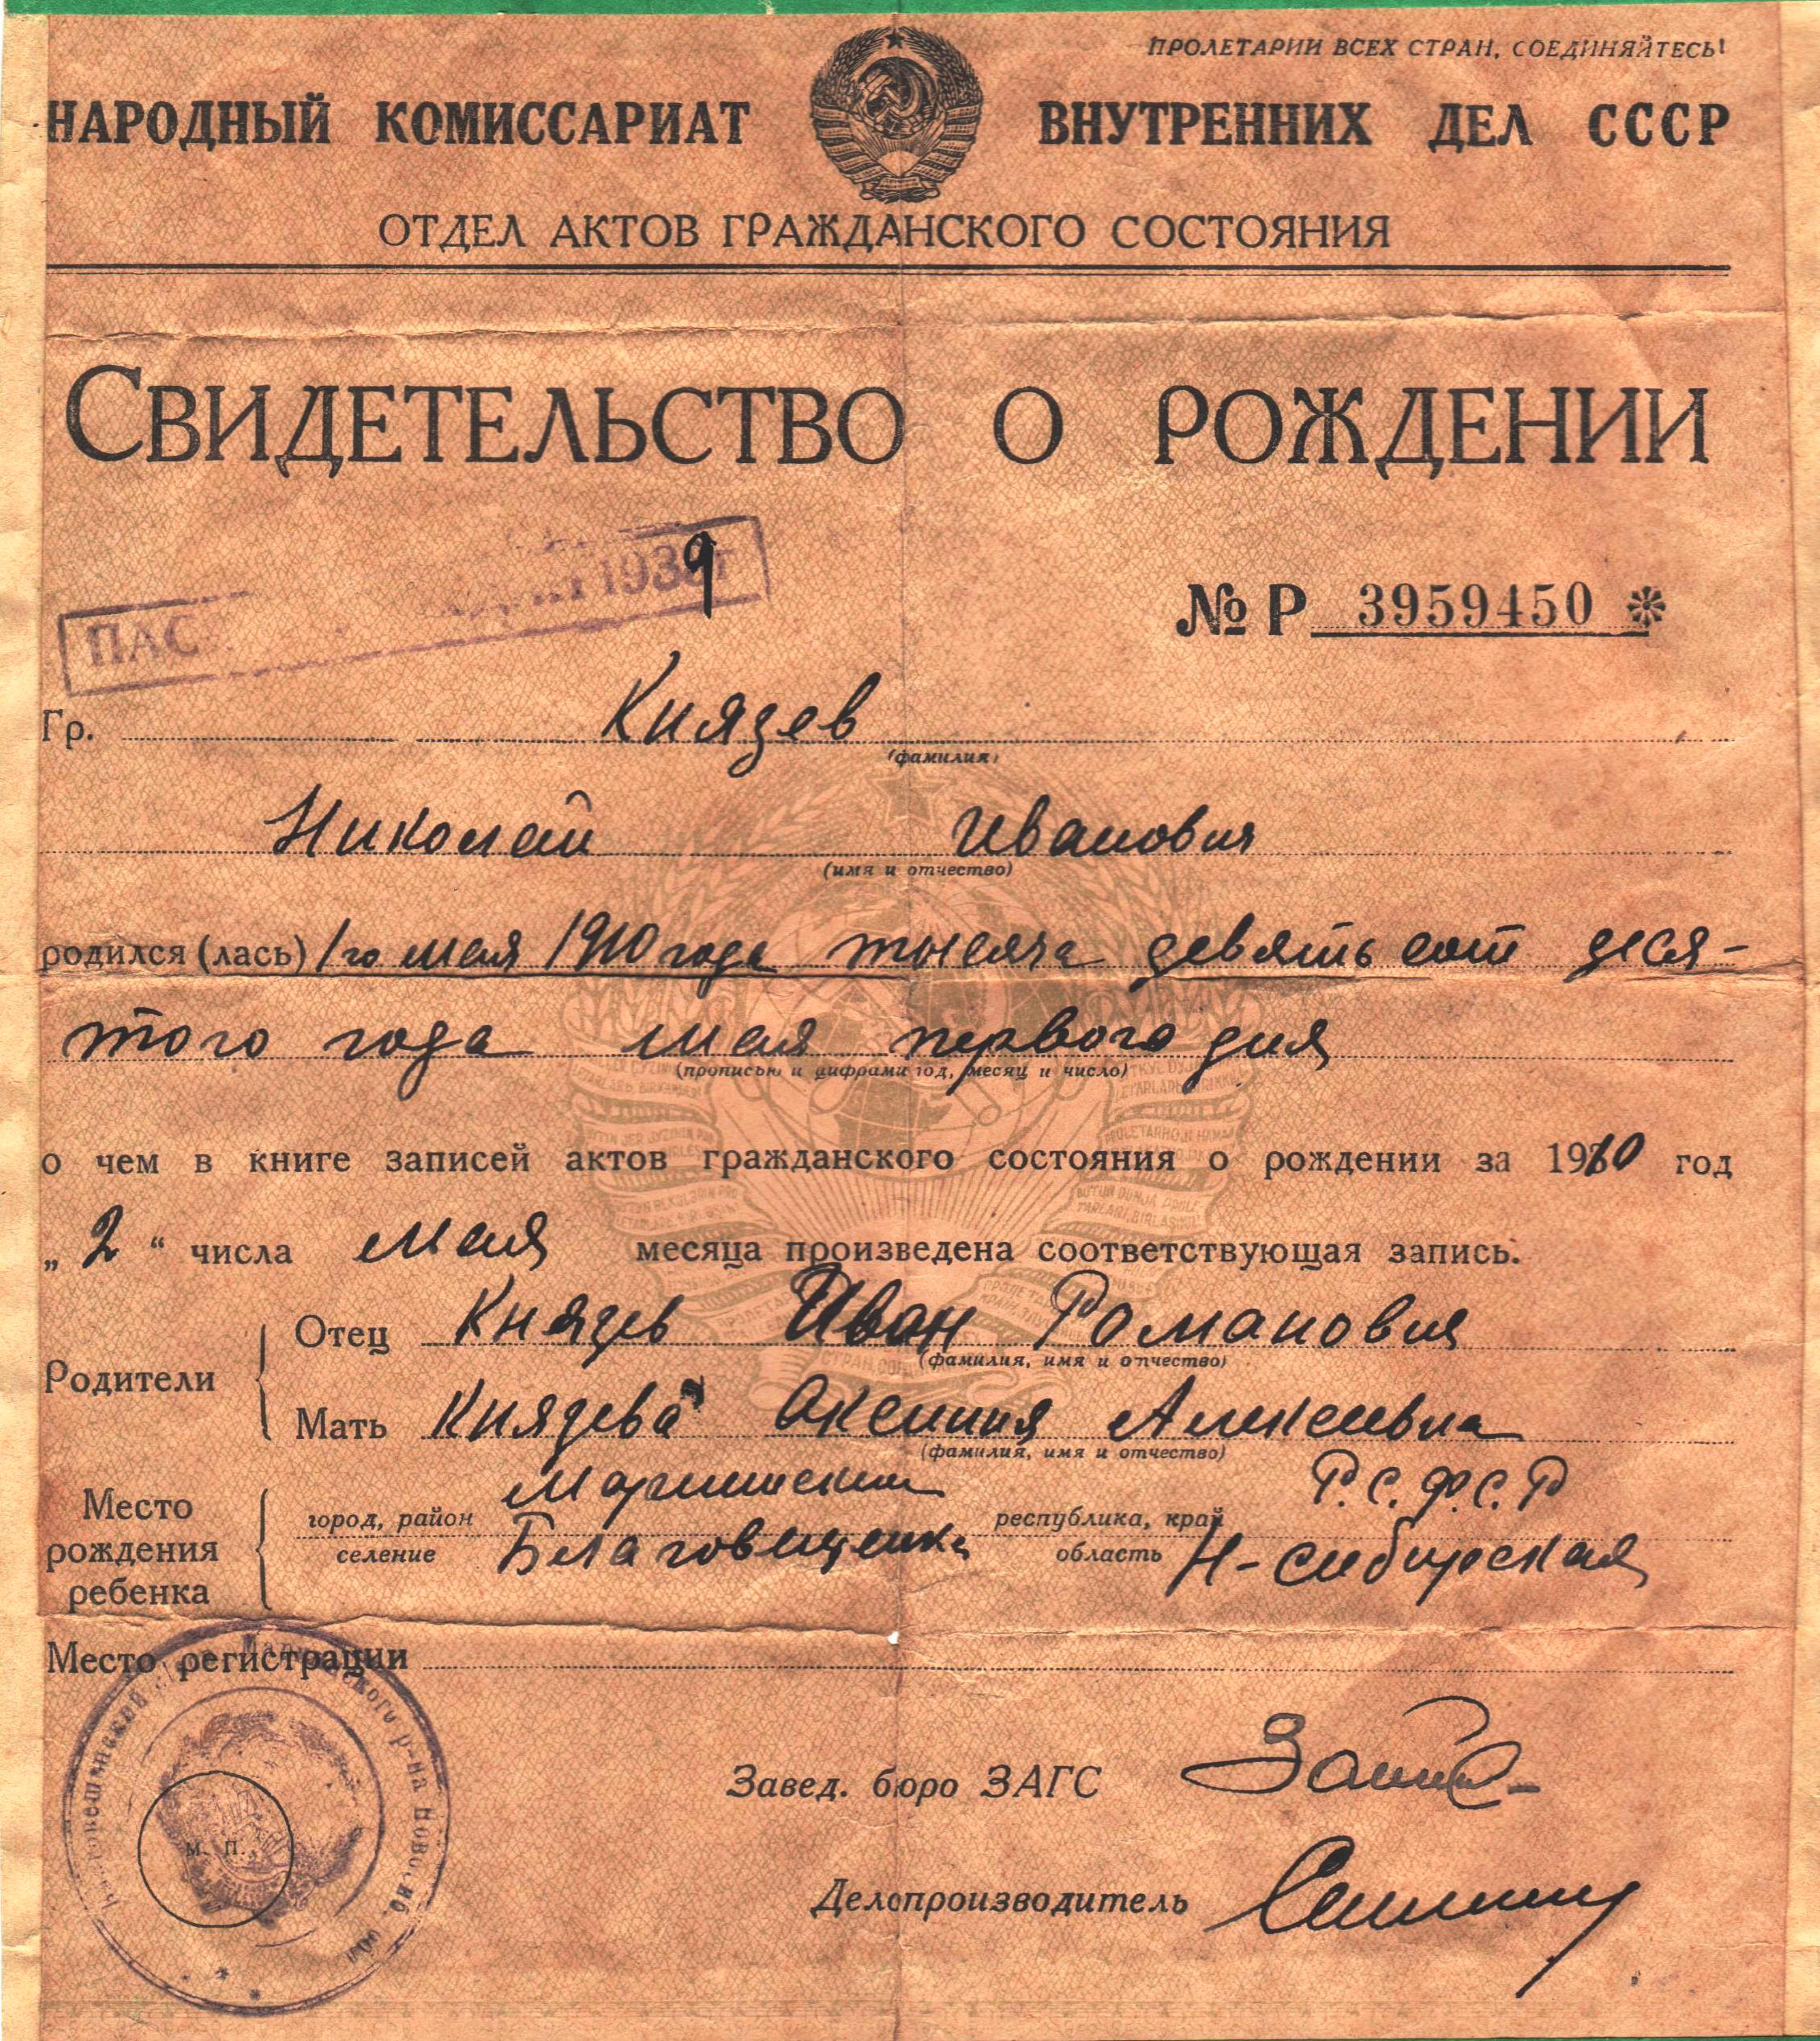 ПРОЛЕТАРИИ ВСЕХ СТРАН, СОЕДИНЯЙТЕСЬ!
НАРОДНЫЙ КОМИССАРИАТ ВНУТРЕННИХ ДЕЛ СССР
ОТДЕЛ АКТОВ ГРАЖДАНСКОГО СОСТОЯНИЯ
СВИДЕТЕЛЬСТВО О РОЖДЕНИИ
ПАС 1939 г
№ Р 3959450 *
Гр. Князев
(фамилия)
Николай Иванович
(имя и отчество)
родился (лась) 1го мая 1910 года тысяча девятьсот деся-
того года мая первого дня
(прописью и цифрами год, месяц и число)
о чем в книге записей актов гражданского состояния о рождении за 1910 год
„ 2 “ числа мая месяца произведена соответствующая запись.
Родители
Отец Князев Иван Романович
(фамилия, имя и отчество)
Мать Князева Аксиния Алексеевна
(фамилия, имя и отчество)
Место рождения ребенка
город, район Мариинский республика, край Р.С.Ф.С.Р
селение Благовещенка область Н-сибирская
Место регистрации
М. П.
Завед. бюро ЗАГС
Делопроизводитель